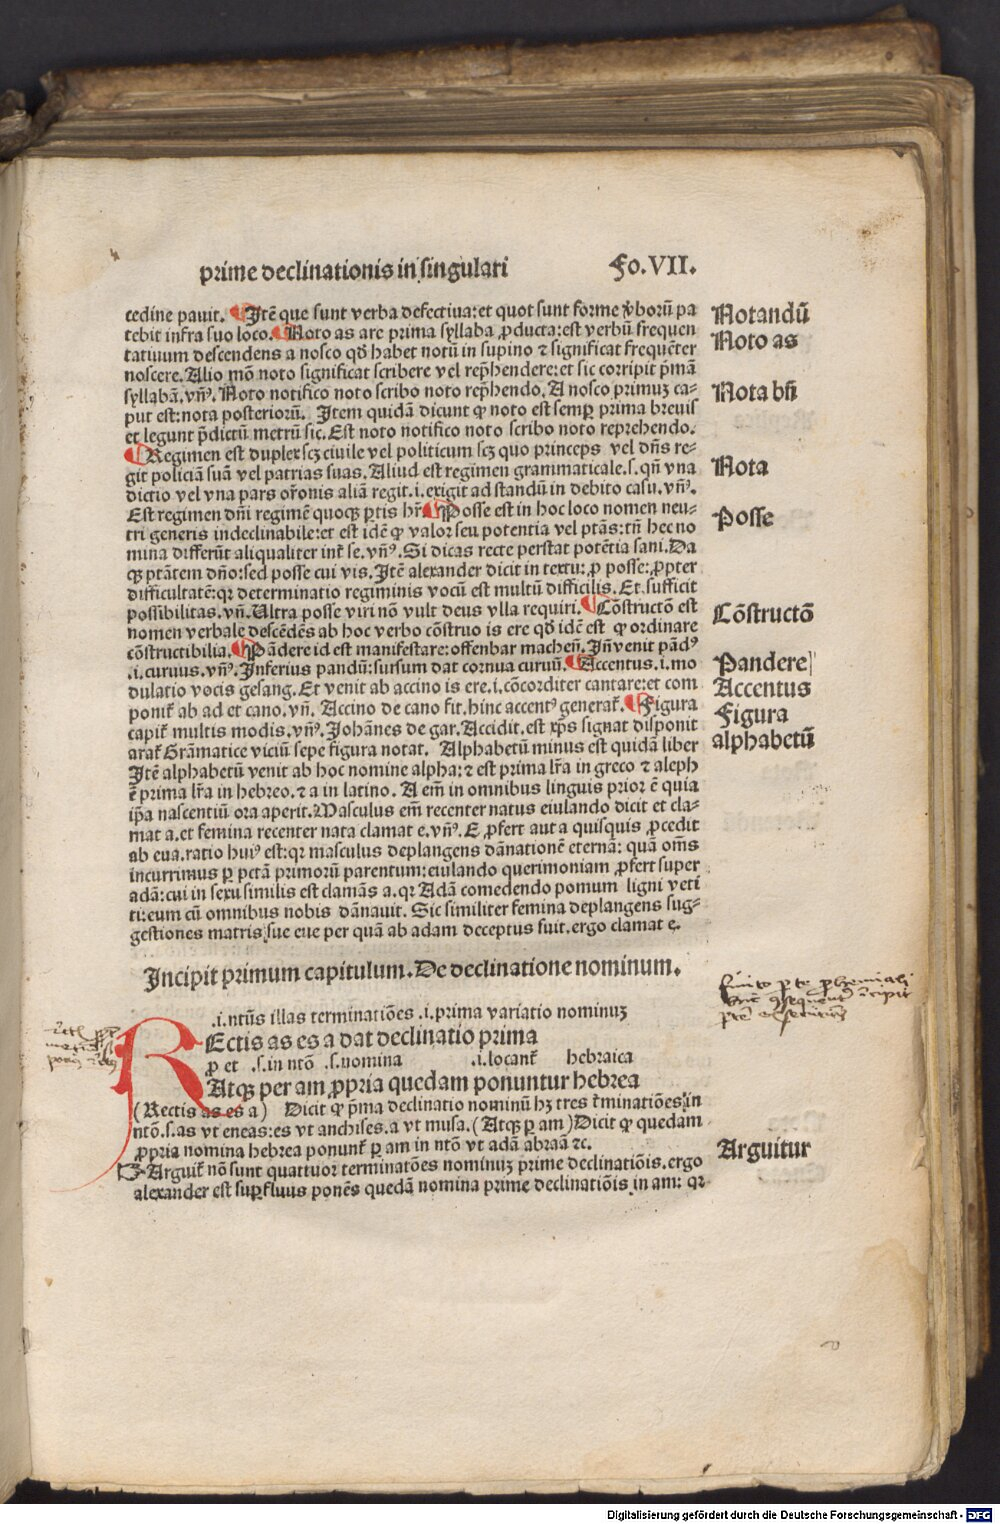 prime declinationis in singulari Fo.VII.
cedine pauit. Itē que sunt verba defectiua:et quot sunt forme v̄borū pa
tebit infra suo loco. Noto as are prima syllaba ꝓducta:est verbū frequen
tatiuum descendens a nosco qd̄ habet notū in supino ⁊ significat frequēter
noscere. Alio mō noto significat scribere vel rep̄hendere:et sic corripit p̄mā
syllabā.vn̄ꝰ. Noto notifico noto scribo noto rep̄hendo. A nosco primuꝫ ca-
put est:nota posteriorū. Item quidā dicunt ꝙ noto est semꝑ prima breuis
et legunt p̄dictū metrū sic. Est noto notifico noto scribo noto reprehendo.
Regimen est duplex scꝫ ciuile vel politicum scꝫ quo princeps vel dn̄s re-
git policiā suā vel patrias suas. Aliud est regimen grammaticale.s.qn̄ vna
dictio vel vna pars or̄onis aliā regit.i.exigit ad standū in debito casu.vn̄ꝰ.
Est regimen dn̄i regimē quoqꝫ ꝑtis hr̄. Posse est in hoc loco nomen neu-
tri generis indeclinabile:et est idē ꝙ valor seu potentia vel ptās:tn̄ hec no
mina differūt aliqualiter int̄ se.vn̄ꝰ. Si dicas recte perstat potētia sani. Da
qꝫ ptātem dn̄o:sed posse cui vis. Itē alexander dicit in textu: ꝓ posse: ꝓpter
difficultatē:qꝛ determinatio regiminis vocū est multū difficilis. Et sufficit
possibilitas.vn̄. Ultra posse viri nō vult deus vlla requiri. Cōstructō est
nomen verbale descēdēs ab hoc verbo cōstruo is ere qd̄ idē est ꝙ ordinare
cōstructibilia. Pādere id est manifestare:offenbar machen̄. Jn̄ venit pādꝰ
.i.curuus.vn̄ꝰ. Inferius pandū:sursum dat cornua curuū. Accentus.i.mo
dulatio vocis gesang. Et venit ab accino is ere.i.cōcorditer cantare:et com
ponit̄ ab ad et cano.vn̄. Accino de cano fit.hinc accentꝰ generat̄. Figura
capit̄ multis modis.vn̄ꝰ. Johānes de gar. Accidit.est xp̄s signat disponit
arat̄ Grāmatice viciū sepe figura notat. Alphabetū minus est quidā liber
Itē alphabetū venit ab hoc nomine alpha:⁊ est prima lr̄a in greco ⁊ aleph
ē prima lr̄a in hebreo.⁊ a in latino. A em̄ in omnibus linguis prior ē quia
ip̄a nascentiū ora aperit. Masculus em̄ recenter natus eiulando dicit et cla-
mat a.et femina recenter nata clamat e.vn̄ꝰ. E ꝓfert aut a quisquis ꝓcedit
ab eua.ratio huiꝰ est:qꝛ masculus deplangens dānationē eternā: quā om̄s
incurrimus ꝑ pctā primorū parentum:eiulando querimoniam ꝓfert super
adā:cui in sexu similis est clamās a.qꝛ Adā comedendo pomum ligni veti
ti:eum cū omnibus nobis dānauit. Sic similiter femina deplangens sug-
gestiones matris sue eue per quā ab adam deceptus fuit.ergo clamat e.
Notandū
Noto as
Nota bn̄
Nota
Posse
Cōstructō
Pandere
Accentus
Figura
alphabetū
Incipit primum capitulum. De declinatione nominum.
.i.ntūs illas terminatiōes .i.prima variatio nominuꝫ
REctis as es a dat declinatio prima
ꝓ et .s.in ntō .s.nomina .i.locant̄ hebraica
Atqꝫ per am ꝓpria quedam ponuntur hebrea
(Rectis as es a) Dicit ꝙ p̄ma declinatio nominū hꝫ tres t̄minatiōes in
ntō.s.as vt eneas:es vt anchises.a vt musa.(Atqꝫ ꝑ am) Dicit ꝙ quedam
ꝓpria nomina hebrea ponunt̄ ꝑ am in ntō vt adā abraā ⁊c.
Arguit̄ nō sunt quattuor terminatōes nominuꝫ prime declinatiōis.ergo
alexander est suꝑfluus ponēs quedā nomina prime declinatiōis in am: qꝛ
Arguitur
Digitalisierung gefördert durch die Deutsche Forschungsgemeinschaft - DFG